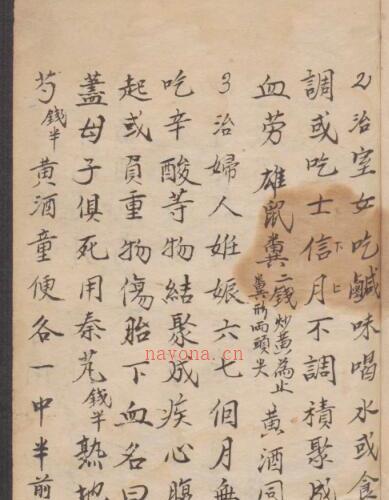 2治室女吃鹹味喝水或食
調或吃士信月不調積聚成
下上
血劳 雄鼠糞二錢炒黃為止 黃酒同
糞形两頭尖
3治婦人姙娠六七個月無
吃辛酸等物結聚成疾心腹
起或負重物傷胎下血名曰
蓋母子俱死用秦艽錢半熟地
芍錢半黃酒童便各一中半前
nayona.cn